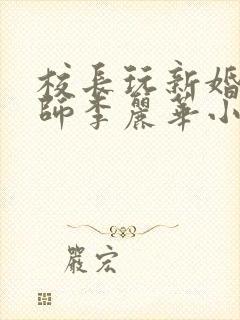 校長玩新婚
師李麗華小
嚴宏